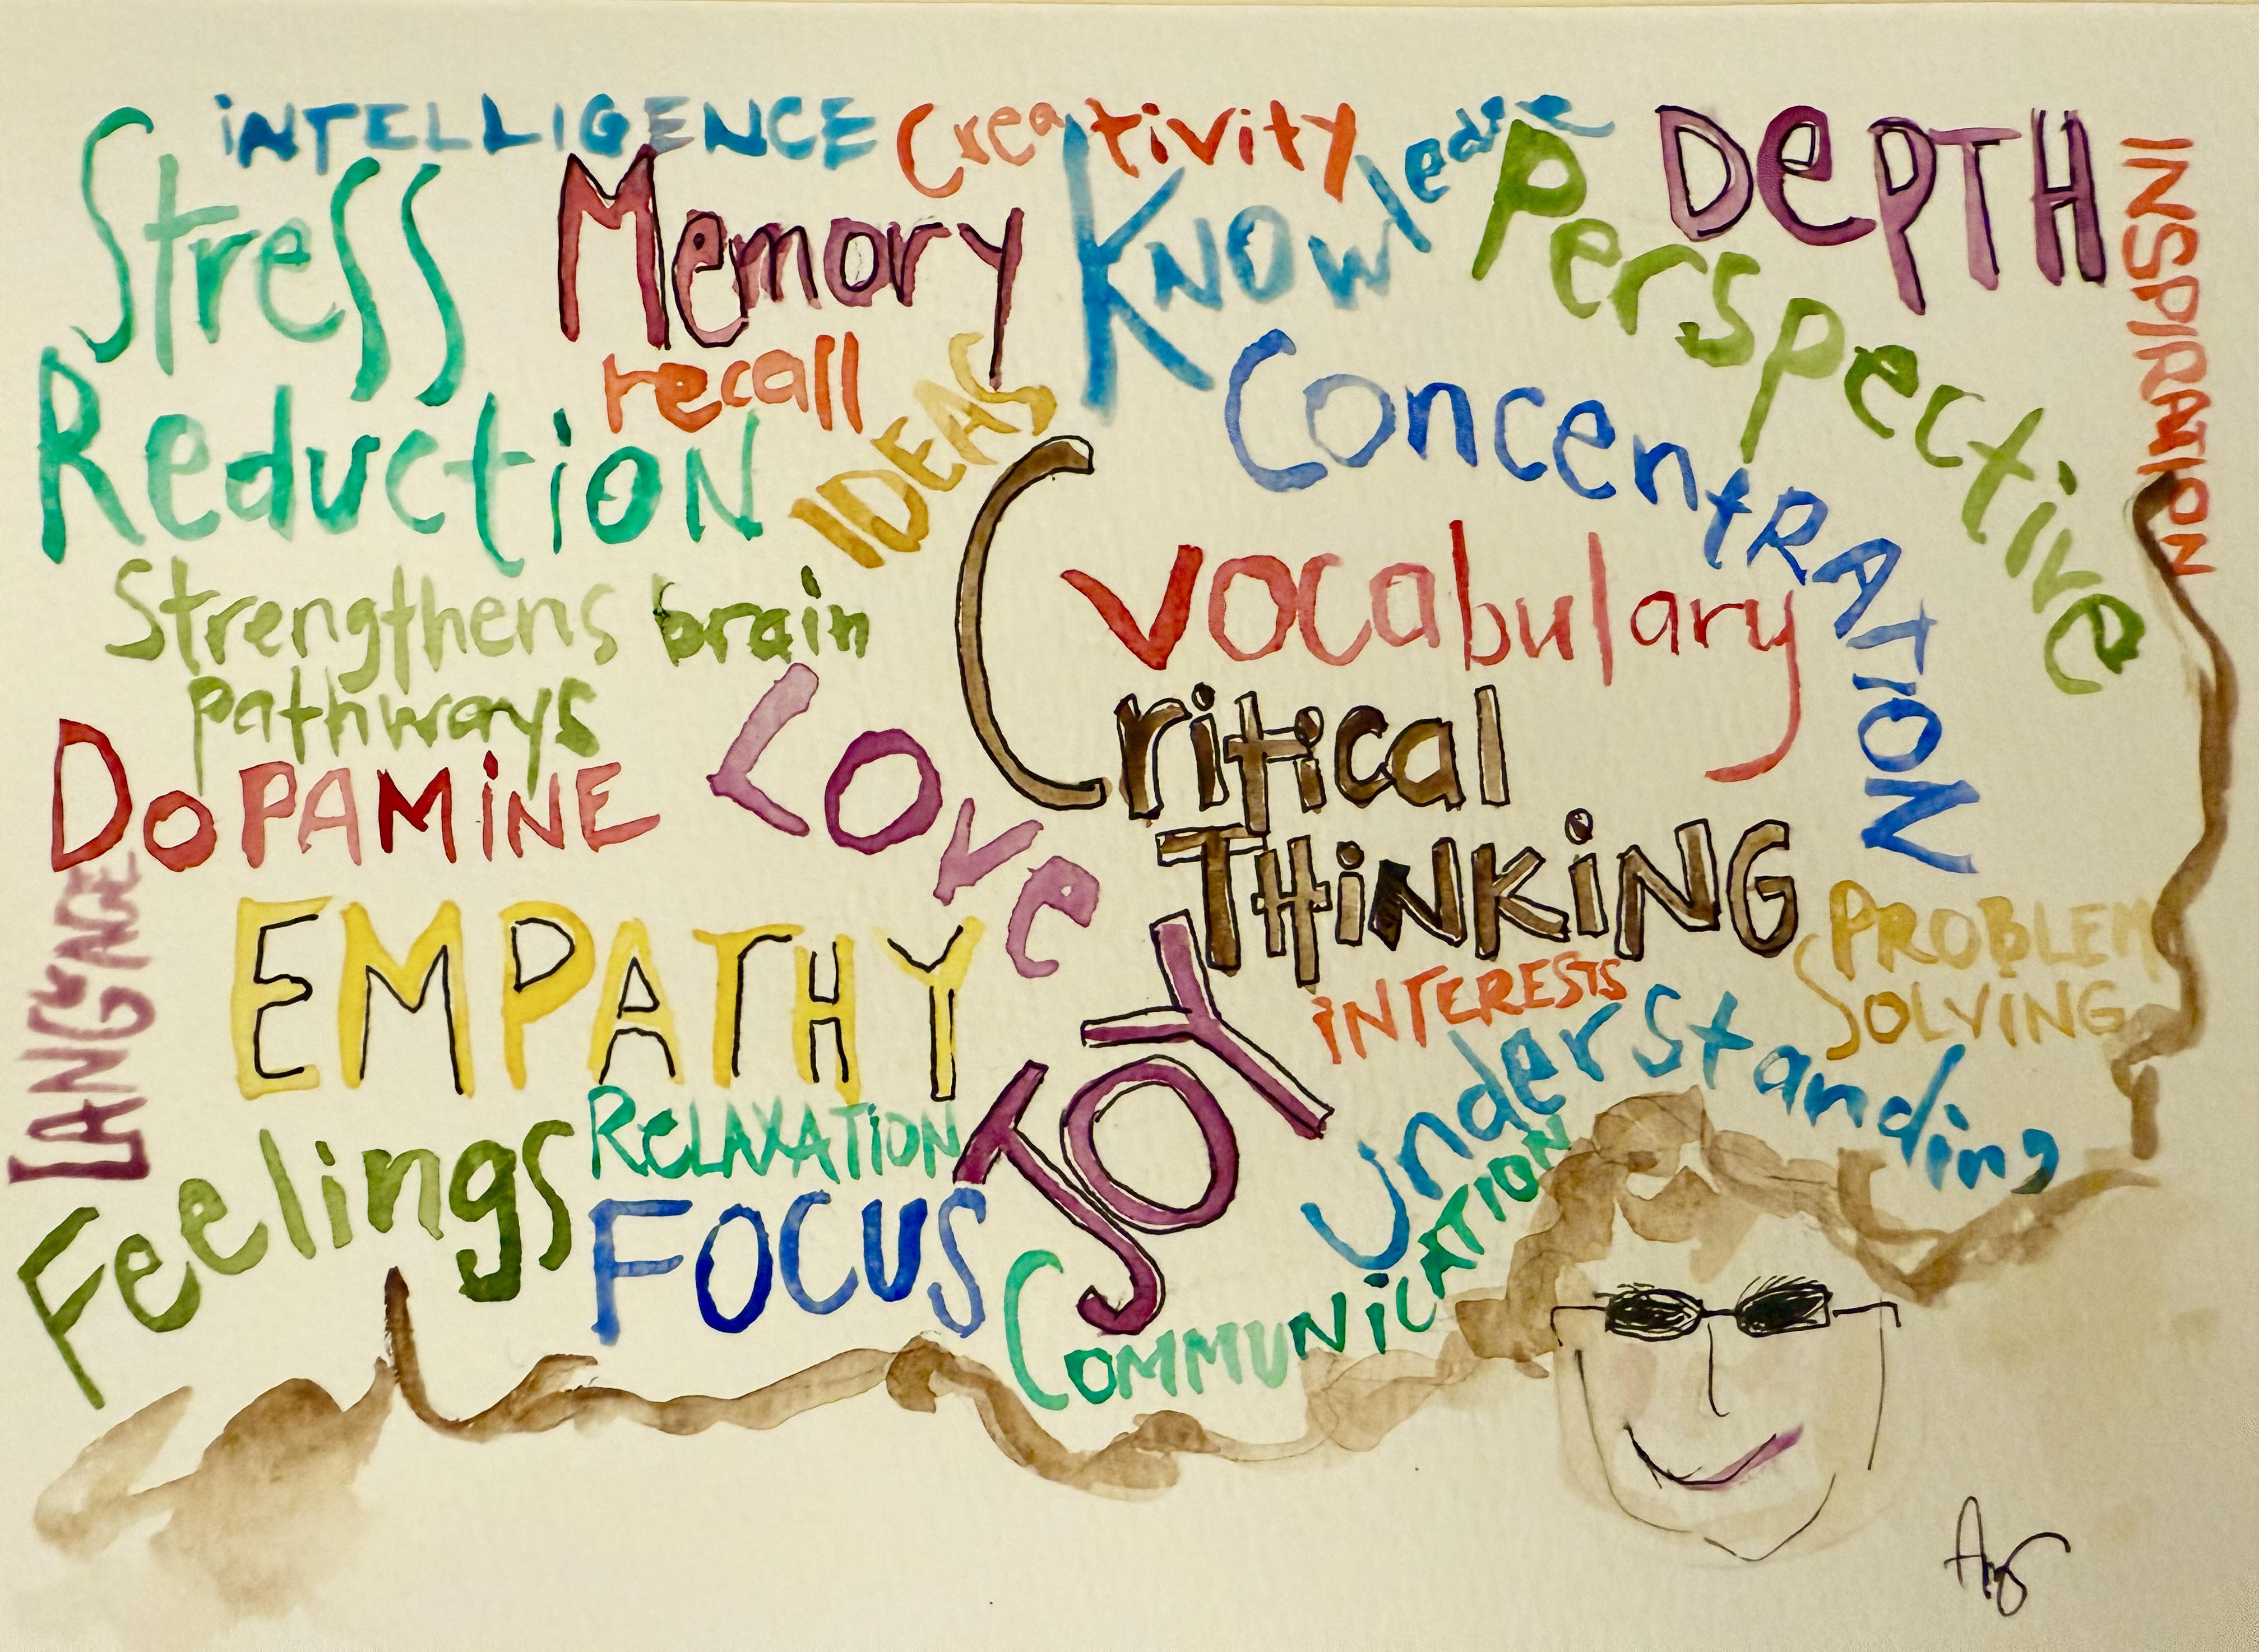 iNTELLIGENCE
Creativity
Knowledge
Perspective
DePTH
INSPIRATION
Stress
Reduction
Memory
recall
IDEAS
Concentration
Strengthens brain
pathways
vocabulary
Critical
THiNKiNG
DoPAMiNE
Love
LANGUAGE
EMPATHY
JOY
iNTERESTS
PROBLEM
SOLVING
Understanding
Feelings
ReLAXATiON
FOCUS
COMMUNiCATION